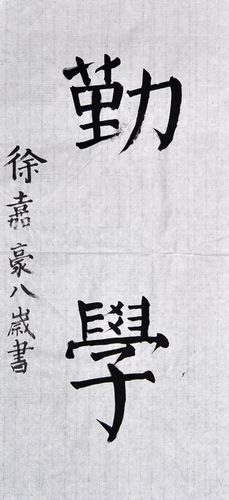 勤學
徐嘉豪八歲書